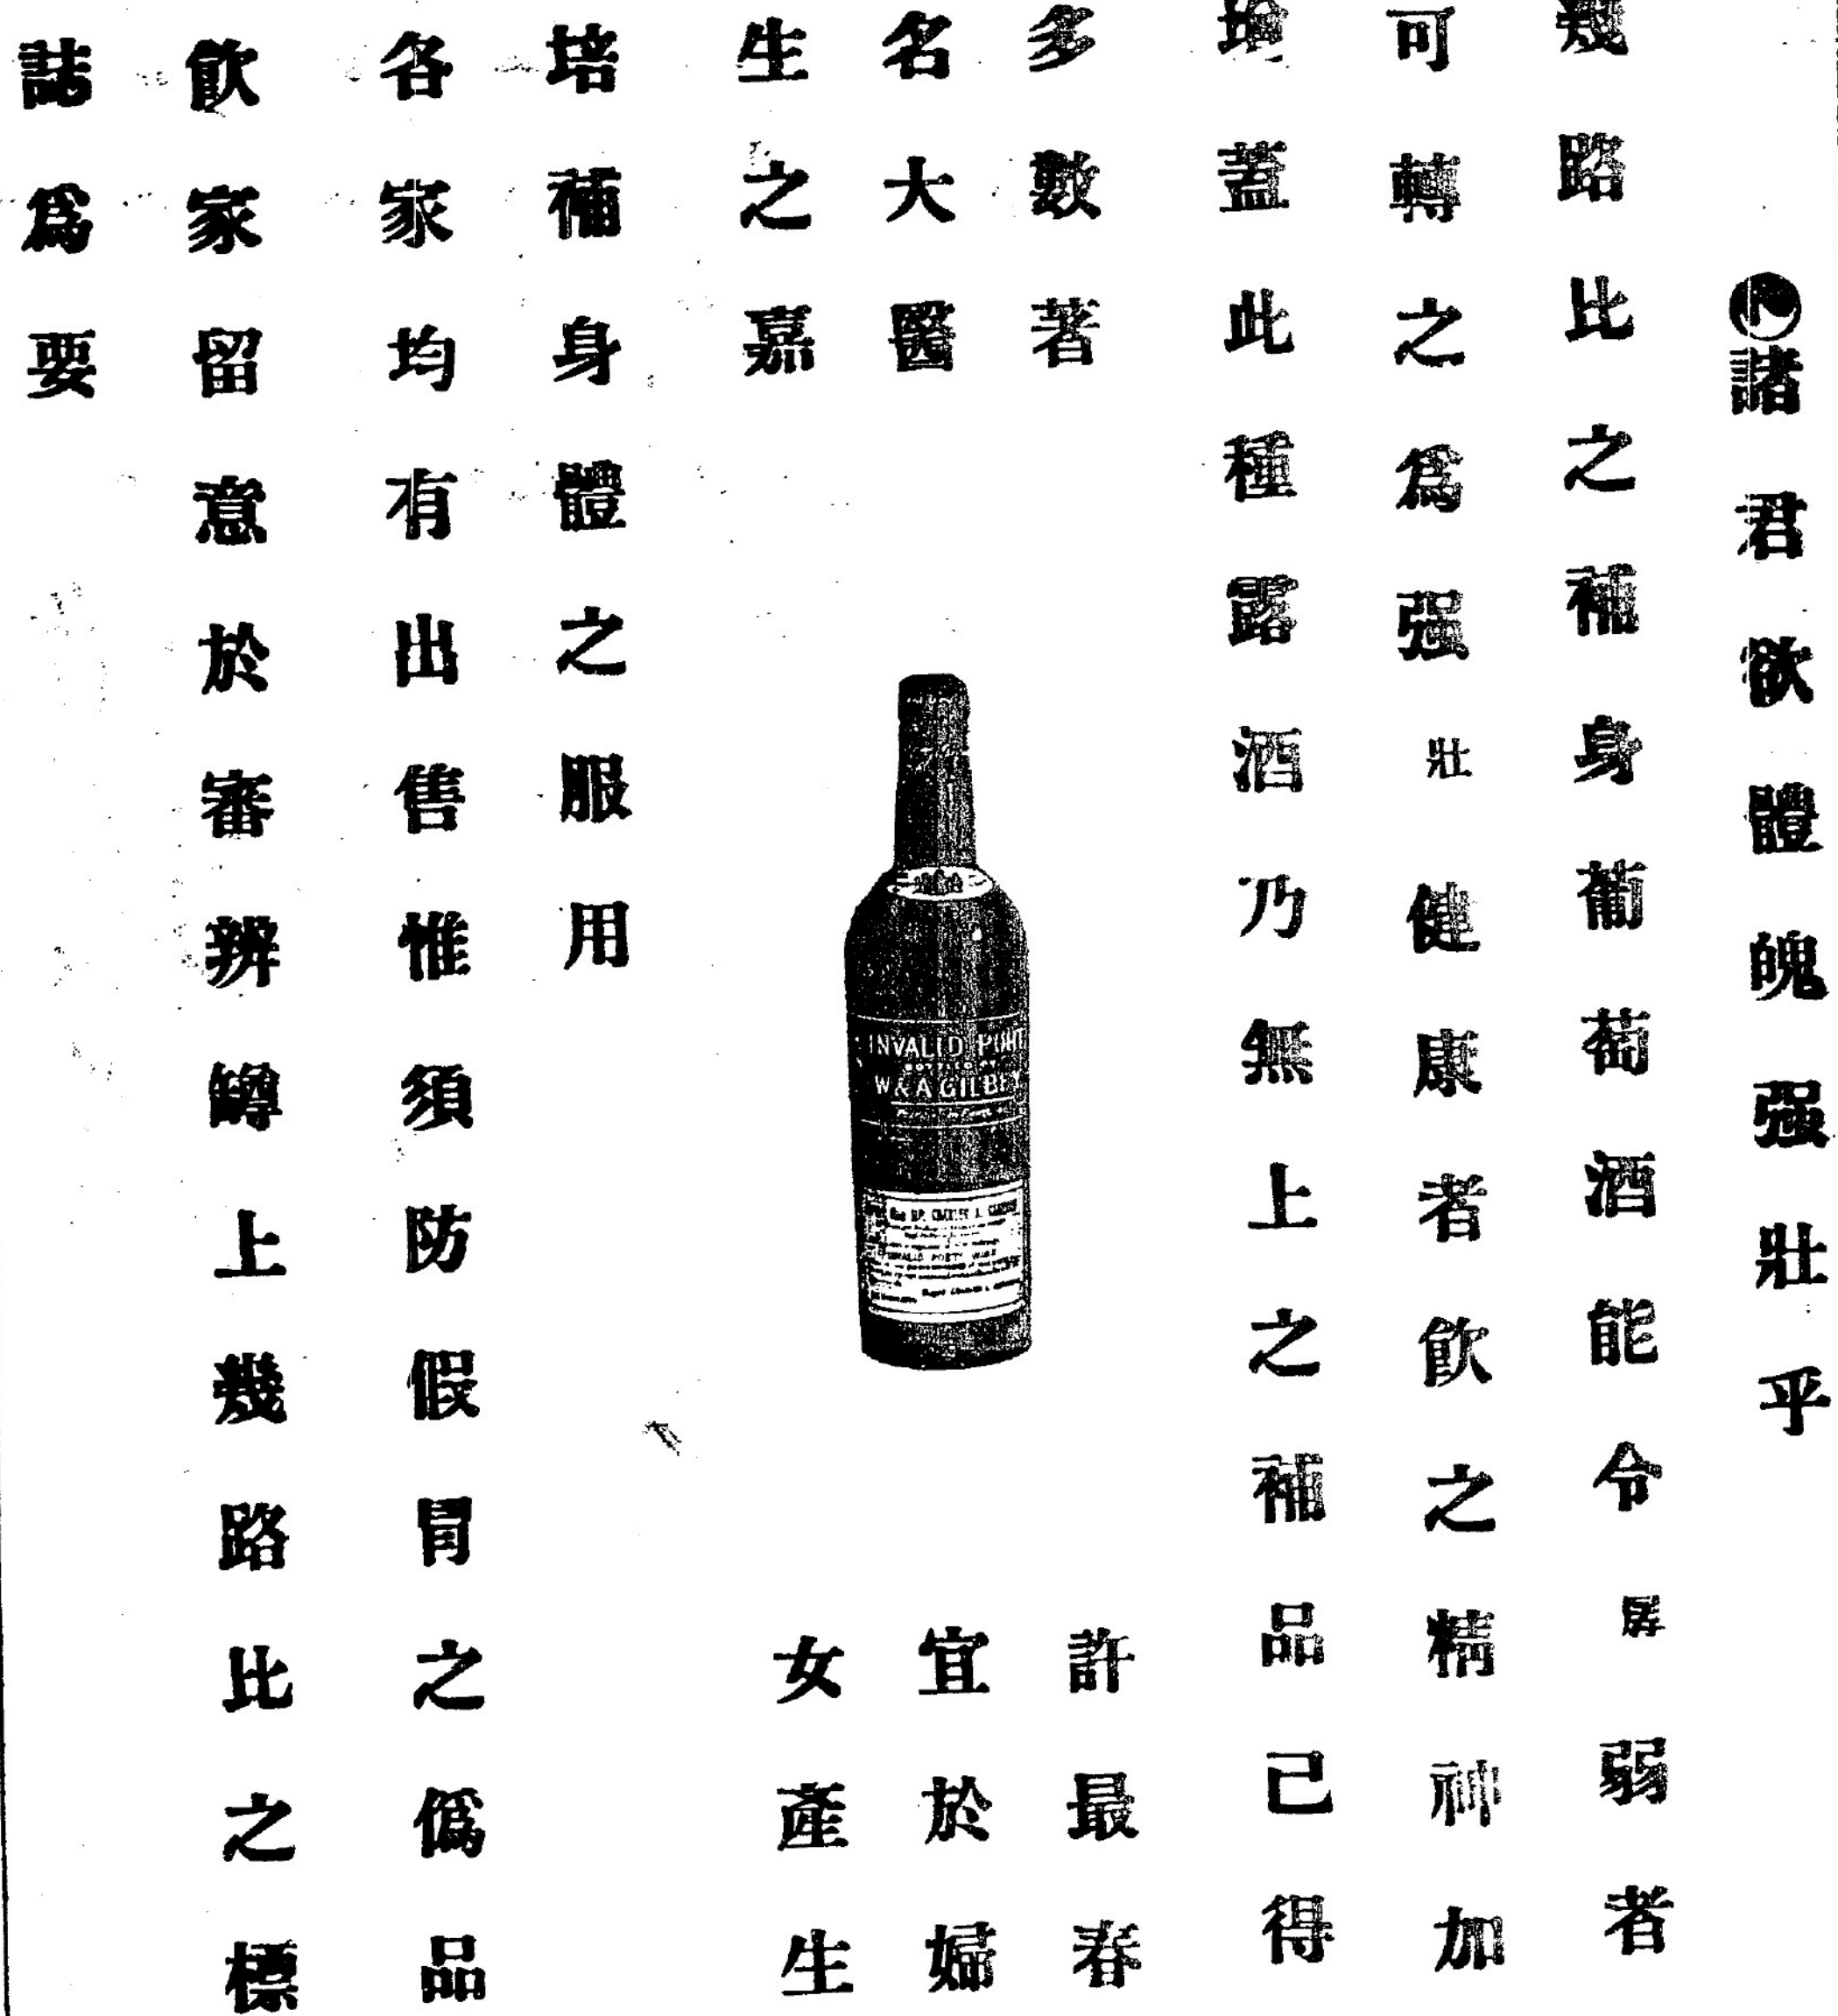 諸君欲體魄强壯乎
幾路比之補身葡萄酒能令孱弱者
可轉之爲强壯健康者飲之精神加
增蓋此種露酒乃無上之補品己得
多數著
名大醫
生之嘉
許最春
宜於婦
女產生
培補身體之服用
各家均有出售惟須防假冐之僞品
飲家留意於審辨罇上幾路比之標
誌爲要
INVALID PORT
W & A GILBEY